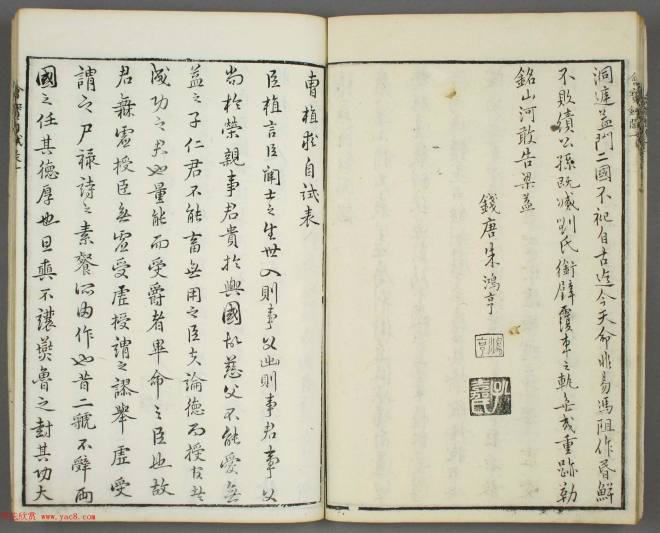 洞庭孟門二國不祀自古迄今天命非易憑阻作昏鮮
不敗績公孫既滅劉氏銜璧覆車之軌無或重跡勒
銘山河敢告梁益
錢唐朱鴻亨
曹植求自試表
臣植言臣聞士之生世入則事父出則事君事父
尚於榮親事君貴於興國故慈父不能愛無
益之子仁君不能畜無用之臣夫論德而授官者
成功之君也量能而受爵者畢命之臣也故
君無虛授臣無虛受虛授謂之謬舉虛受
謂之尸祿詩之素餐所由作也昔二虢不辭兩
國之任其德厚也旦奭不讓燕魯之封其功大
www.yac8.com